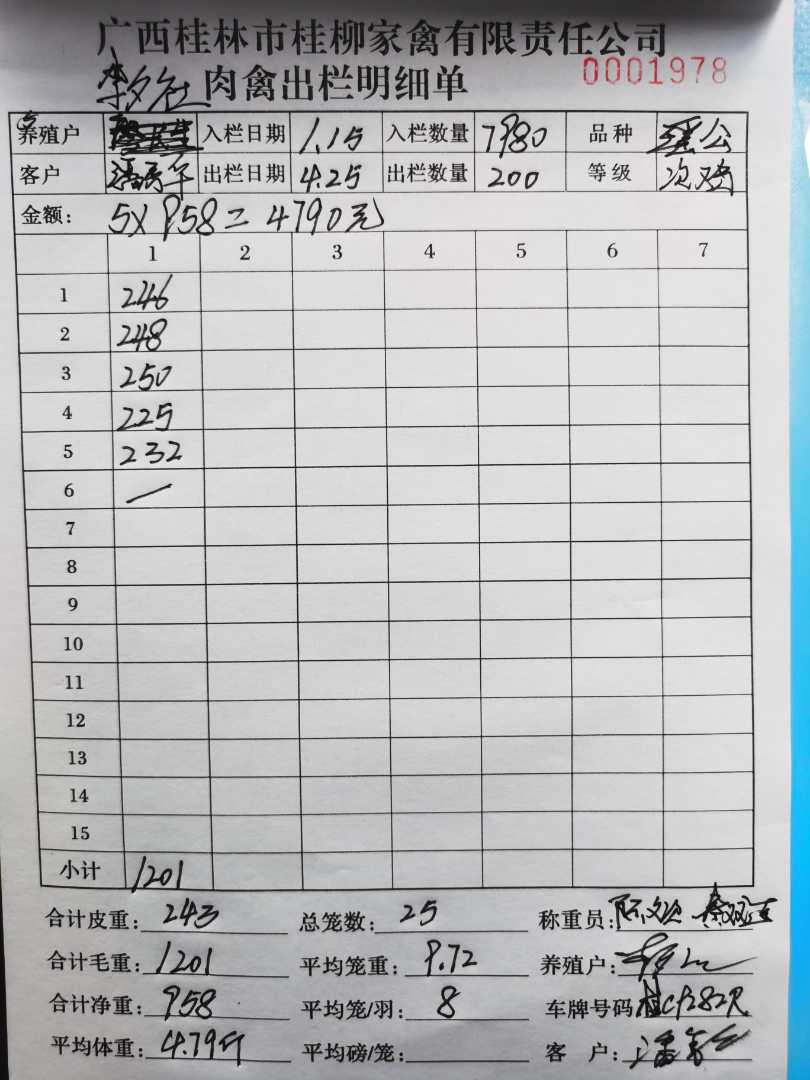 广西桂林市桂柳家禽有限责任公司
肉禽出栏明细单 0001978
养殖户 入栏日期 1.15 入栏数量 7980 品种 公
客户 出栏日期 4.25 出栏数量 200 等级 次鸡
金额: 5X958=4790元
1 2 3 4 5 6 7
1 246
2 248
3 250
4 225
5 232
6 —
7
8
9
10
11
12
13
14
15
小计 1201
合计皮重: 243 总笼数: 25 称重员:
合计毛重: 1201 平均笼重: 9.72 养殖户:
合计净重: 958 平均笼/羽: 8 车牌号码 桂C9282R
平均体重: 4.79斤 平均磅/笼: 客 户: